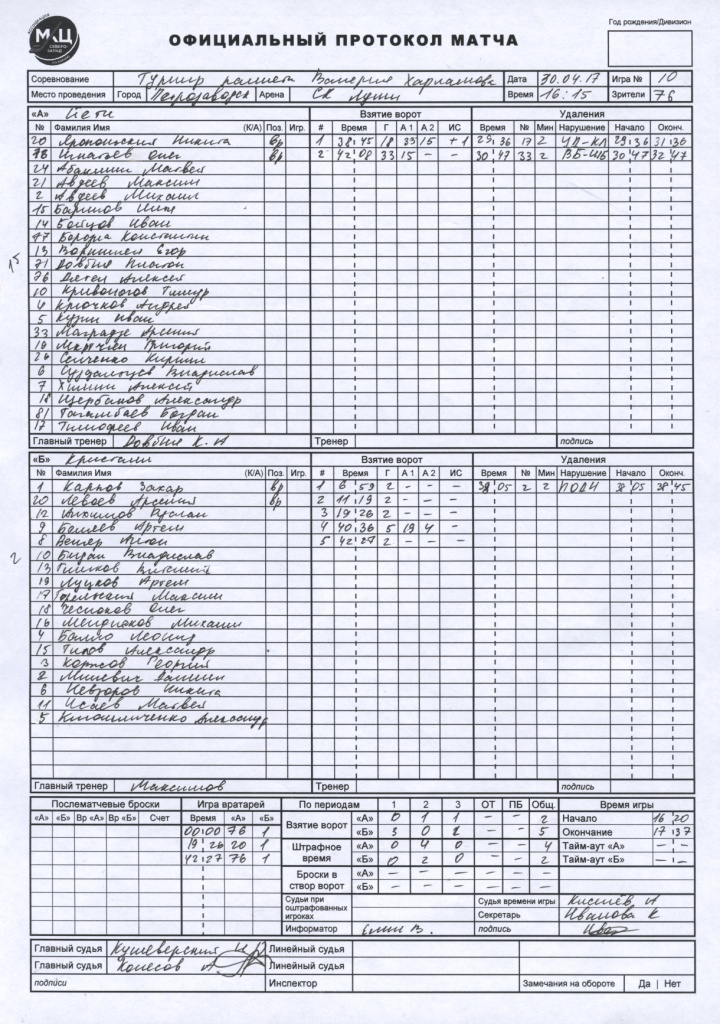 МХЦ
СЕВЕРО-ЗАПАД
ОФИЦИАЛЬНЫЙ ПРОТОКОЛ МАТЧА
Год рождения/Дивизион
Соревнование Турнир памяти Валерия Харламова Дата 30.04.17 Игра № 10
Место проведения Город Петрозаводск Арена СК Луми Время 16:15 Зрители 76
«А» Йети Взятие ворот Удаления
№ Фамилия Имя (К/А) Поз. Игр. # Время Г А 1 А 2 ИС Время № Мин Нарушение Начало Оконч.
20 Никита Вр 1 38 45 18 33 15 +1 29 36 17 2 УД-КЛ 29 36 31 36
76 Игнатьев Олег Вр 2 42 08 33 15 – – 30 47 33 2 ВБ-ШБ 30 47 32 47
24 Матвей
21 Авдеев Максим
2 Авдеев Михаил
15 Баринов Илья
14 Бойцов Иван
77 Константин
13 Егор
71 Довбня Платон
76 Алексей
10 Кривоногов Тимур
4 Крючков Андрей
5 Кузин Иван
33 Маградзе Арсений
19 Григорий
26 Семченко Кирилл
6 Суздальцев Владислав
7 Химин Алексей
18 Щербаков Александр
81 Тагамбаев Богдан
17 Тимофеев Иван
15
Главный тренер Довбня К. А Тренер подпись
«Б» Кристалл Взятие ворот Удаления
№ Фамилия Имя (К/А) Поз. Игр. # Время Г А 1 А 2 ИС Время № Мин Нарушение Начало Оконч.
1 Карпов Захар Вр 1 6 59 2 – – – 38 05 2 2 ПОДН 38 05 38 45
20 Левоев Арсений Вр 2 11 19 2 – – –
12 Руслан 3 19 26 2 – – –
9 Беляев Артем 4 40 36 5 19 4 –
8 5 42 27 2 – – –
10 Владислав
13
19 Луцков Артем
17 Максим
18 Чесноков Олег
16 Михаил
4 Леонид
15 Титов Александр
3 Георгий
2 Миневич Даниил
6 Невзоров Никита
11 Исаев Матвей
5 Александр
2
Главный тренер Максимов Тренер подпись
Послематчевые броски Игра вратарей По периодам 1 2 3 ОТ ПБ Общ. Время игры
«А» «Б» Вр «А» Вр «Б» Счет Время «А» «Б» Взятие ворот «А» 0 1 1 – – 2 Начало 16 20
00:00 76 1 «Б» 3 0 2 – – 5 Окончание 17 37
19 26 20 1 Штрафное время «А» 0 4 0 – – 4 Тайм-аут «А» – –
42:27 76 1 «Б» 0 2 0 – – 2 Тайм-аут «Б» – –
Броски в створ ворот «А» – – – – – –
«Б» – – – – – –
Судьи при оштрафованных игроках Судья времени игры Киселёв А
Секретарь Иванова К
Информатор Елин В. подпись
Главный судья Кушеверский Линейный судья
Главный судья Колесов А Линейный судья
подписи Инспектор Замечания на обороте Да | Нет